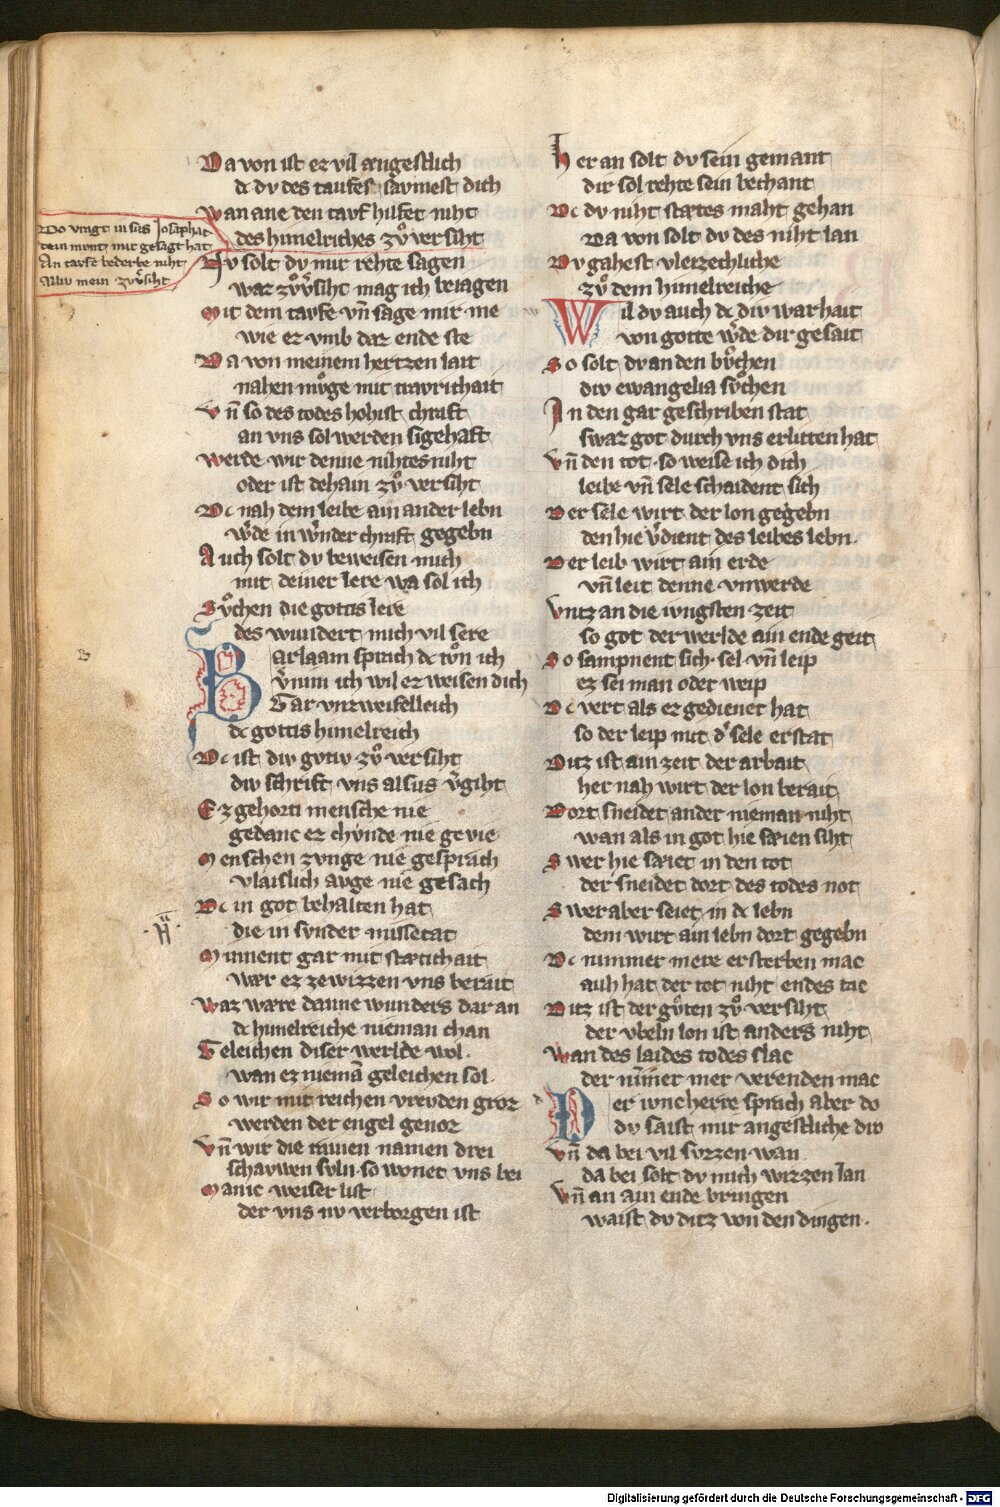 Da von ist er vil angestlich
dc dv des taufes savmest dich
wan ane den tavf hilfet niht
des himelriches zvͦ versiht
Do vragt in sus Josaphat
dein munt mir gesagt hat
An tavfe bederbe niht
Alliv mein zvv̓siht
Nv solt dv mir rehte sagen
waz zvͦv̓siht mag ich beiagen
Mit dem tavfe vn̄ sage mir me
wie ez vmb daz ende ste
Da von meinem hertzen lait
nahen mvͦge mit travrichait
Vn̄ so des todes hohist chraft
an vns sol werden sigehaft
Werde wir denne nihtes niht
oder ist dehain zvͦ versiht
Dc nah dem leibe ain ander lebn
w̓de in w̓nder chraft gegebn
Auch solt dv beweisen mich
mit deiner lere wa sol ich
Svͦchen die gotis lere
des wundert mich vil sere
Barlaam sprach dc tvͦn ich
v̓nim ich wil ez weisen dich
Gar vnzweifelleich
dc gottis himelreich
Dc ist div gvtiv zvͦ versiht
div schrift vns alsus v̓giht
Ez gehorti mensche nie
gedanc ez chvnde nie gevie
Menschen zvnge nie gesprach
vlaislich avge nie gesach
Dc in got behalten hat
die in svnder missetat
Minnent gar mit stætichait
wær ez zewizzen vns berait
Waz ware danne wunders dar an
dc himelreiche nieman chan
Geleichen diser werlde wol.
wan ez niemā geleichen sol.
So wir mit reichen vrevden groz
werden der engel genoz
Vn̄ wir die rainen namen drei
schavwen svln so wonet vns bei
Manic weiser list
der vns nv verborgen ist
Her an solt dv sein gemant
dir sol rehte sein bechant
Dc dv niht stætes maht gehan
Da von solt dv des niht lan
Dv gahest vleizechliche
zvͦ dem himelreiche
Wil dv auch dc div warhait
von gotte w̓de dir gesait
So solt dv an den bvͦchen
div ewangelia svͦchen
In den gar geschriben stat
swaz got durch vns erlitten hat
Vn̄ den tot. so weise ich dich
leibe vn̄ sele schaident sich
Der sele wirt der lon gegebn
den hie v̓dient des leibes lebn.
Der leib wirt ain erde
vn̄ leit denne vnwerde
Vntz an die ivngsten zeit
so got der werlde ain ende geit
So sampnent sich. sel vn̄ leip
ez sei man oder weip
Dc vert als ez gedienet hat
so der leip mit d̓ sele erstat
Ditz ist ain zeit der arbait
her nah wirt der lon berait
Dort sneidet ander nieman niht
wan als in got hie sæien siht
Swer hie sæiet in den tot
der sneidet dort des todes not
Swer aber seiet in dc lebn
dem wirt ain lebn dort gegebn
Dc nimmer mere ersterben mac
auh hat der tot niht endes tac
Ditz ist der gvͦten zvͦ versiht
der vbeln lon ist anders niht
Wan des laides todes slac
der nim̄er mer verenden mac
Der ivncherre sprach aber do
dv saist mir angestliche dro
Vn̄ da bei vil svzzen wan
da bei solt dv mich wizzen lan
Vn̄ an ain ende bringen
waist dv ditz von den dingen.
Digitalisierung gefördert durch die Deutsche Forschungsgemeinschaft - DFG